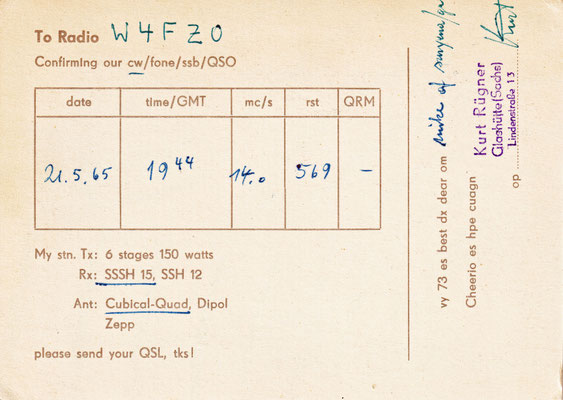 To Radio W4FZO
Confirming our cw/fone/ssb/QSO
date time/GMT mc/s rst QRM
21.5.65 19 44 14.0 569 –
My stn. Tx: 6 stages 150 watts
Rx: SSSH 15, SSH 12
Ant: Cubical-Quad, Dipol
Zepp
please send your QSL, tks!
vy 73 es best dx dear om mike of
Cheerio es hpe cuagn
Kurt Rügner
Glashütte(Sachs)
Lindenstraße 13
op Kurt